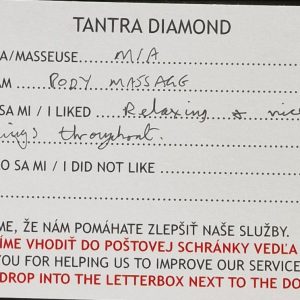 TANTRA DIAMOND
A/MASSEUSE MIA
AM BODY MASSAGE
SA MI / I LIKED Relaxing & nice
throughout.
O SA MI / I DID NOT LIKE
ME, ŽE NÁM POMÁHATE ZLEPŠIŤ NAŠE SLUŽBY.
ÍME VHODIŤ DO POŠTOVEJ SCHRÁNKY VEDĽA
YOU FOR HELPING US TO IMPROVE OUR SERVICE
DROP INTO THE LETTERBOX NEXT TO THE DO